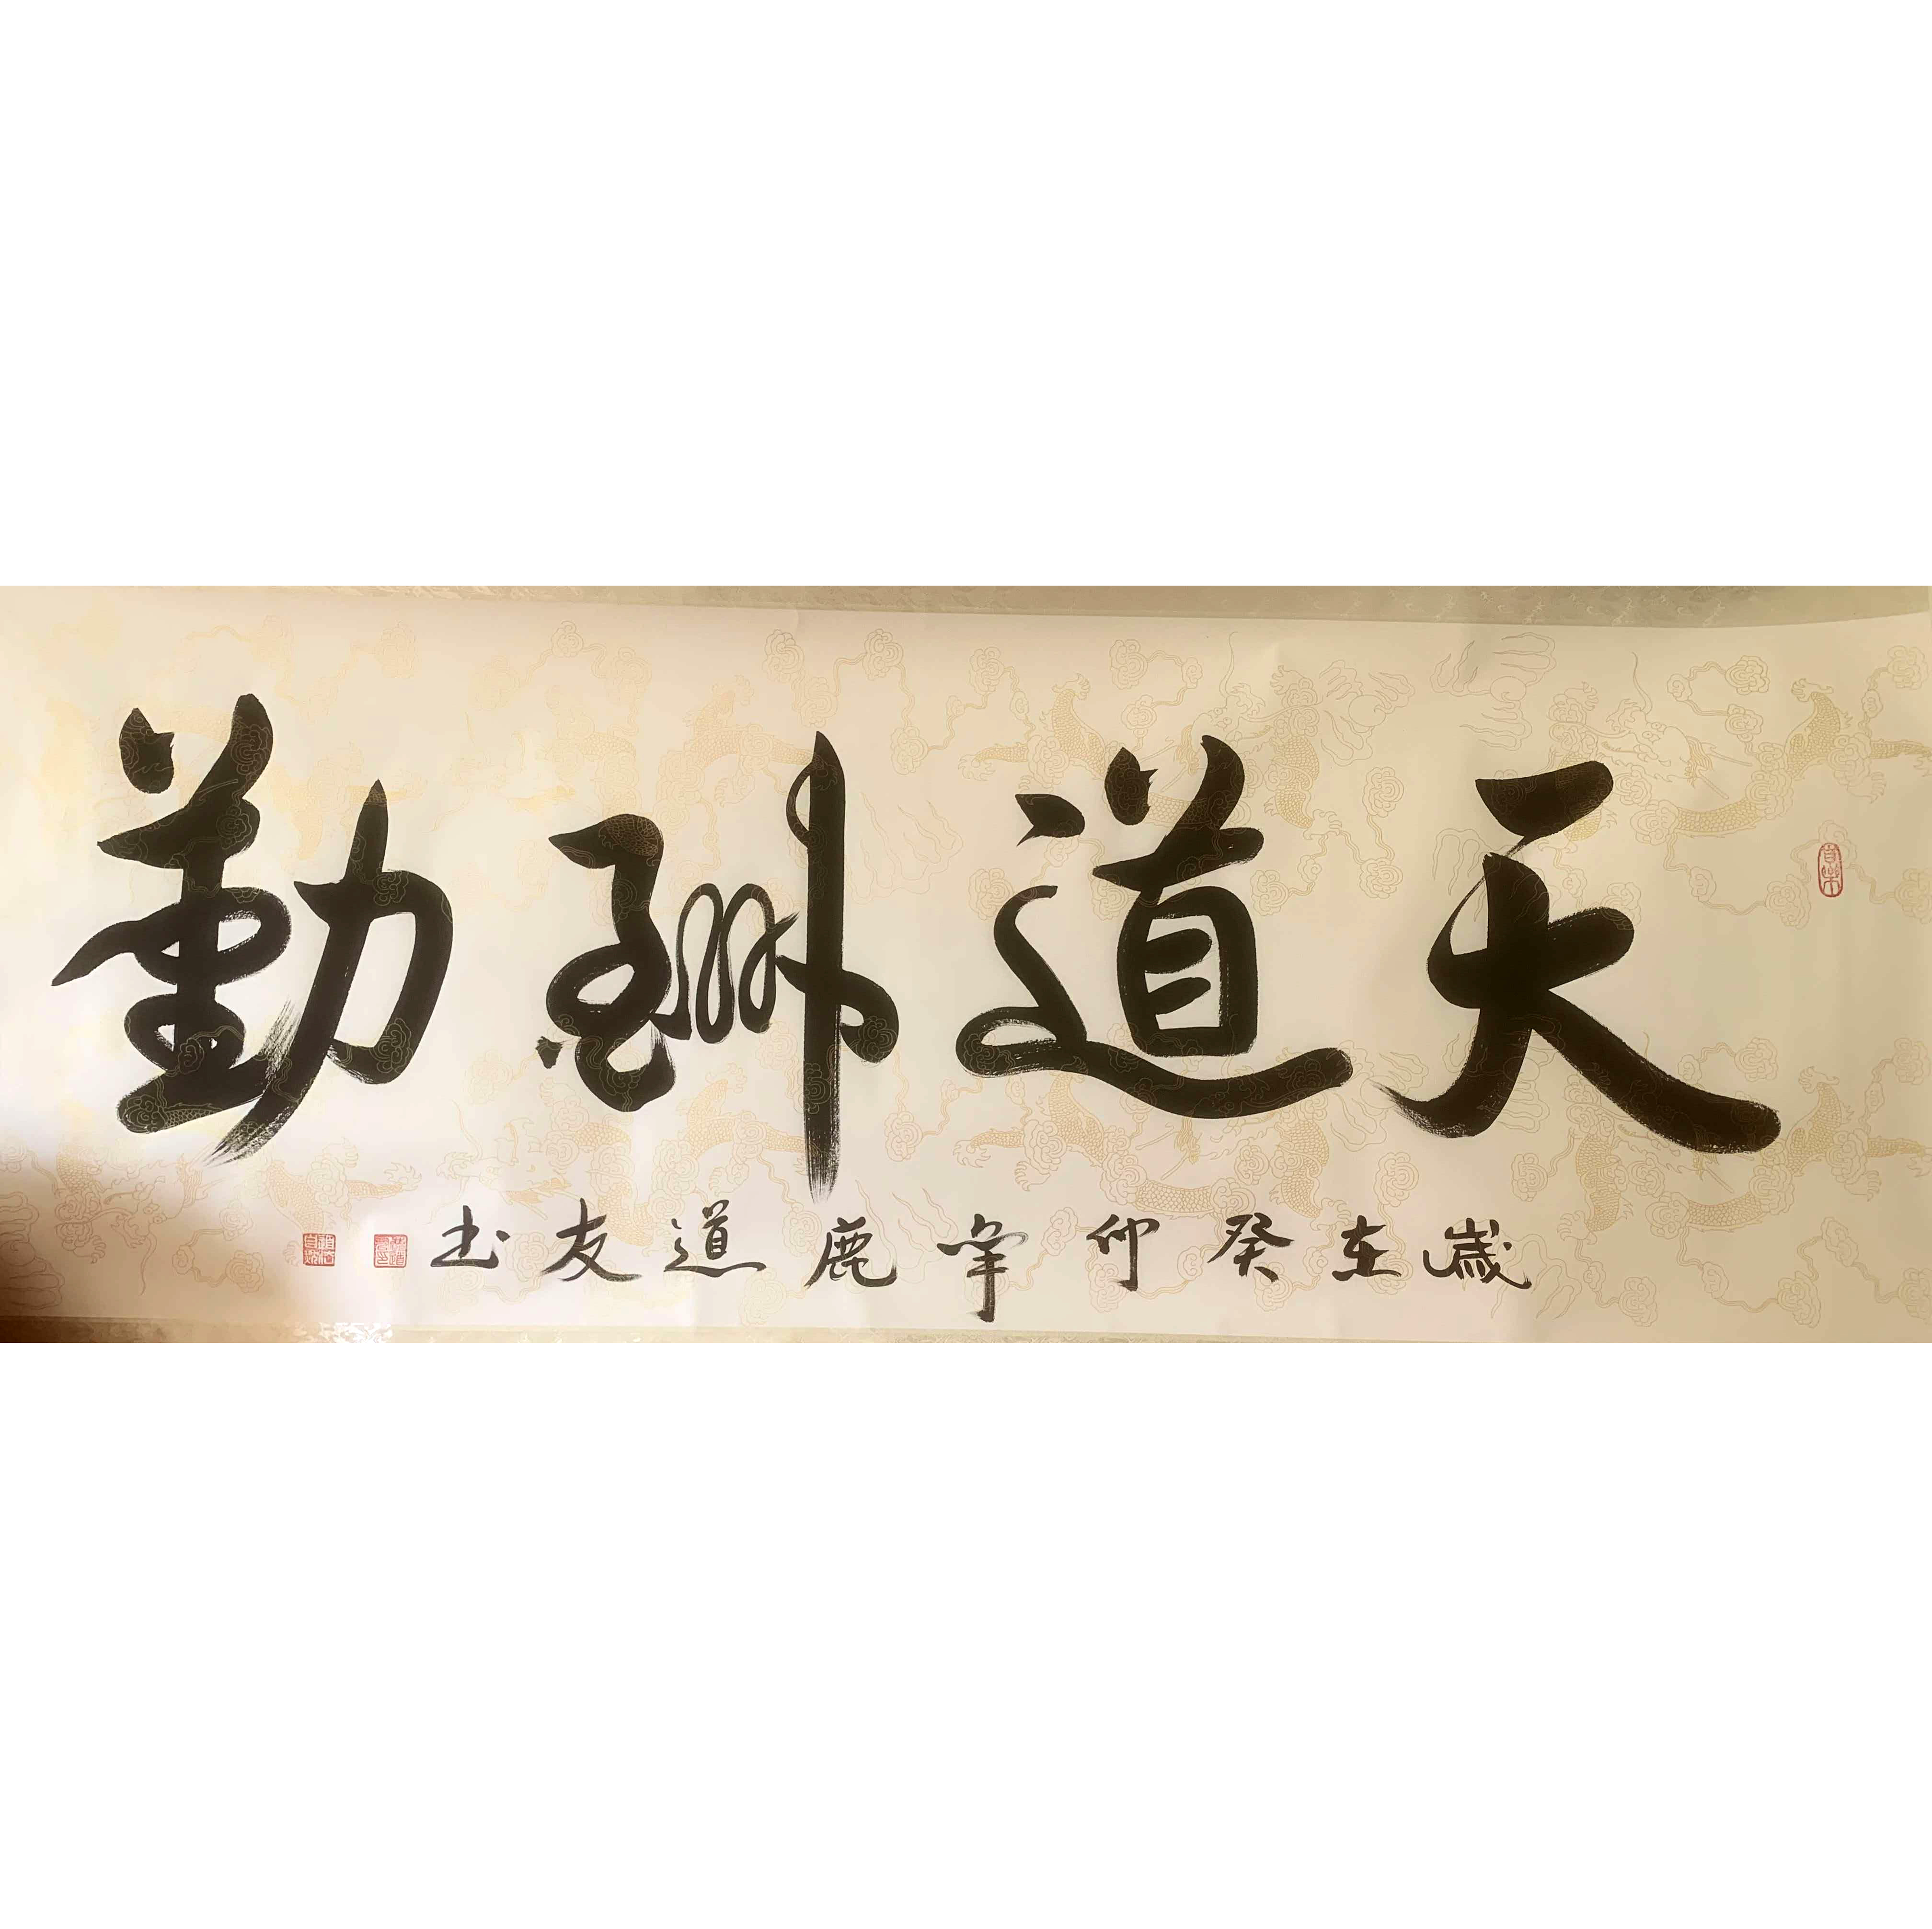 天道酬勤
歲在癸卯年鹿道友书